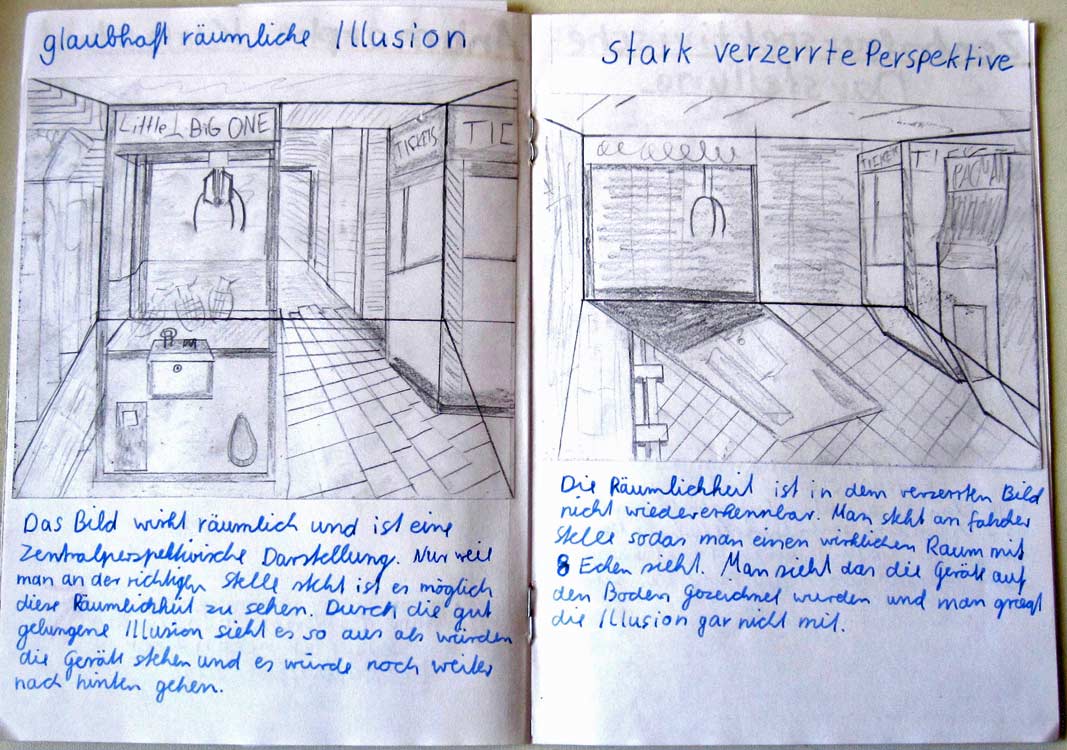 glaubhaft räumliche Illusion
Little BIG ONE
TICKETS
TIC
Das Bild wirkt räumlich und ist eine
Zentralperspektivische Darstellung. Nur weil
man an der richtigen Stelle steht ist es möglich
diese Räumlichkeit zu sehen. Durch die gut
gelungene Illusion sieht es so aus als würden
die Geräte stehen und es würde noch weiter
nach hinten gehen.
Stark verzerrte Perspektive
TICKET
TIC
PACMAN
Die Räumlichkeit ist in dem verzerrten Bild
nicht wiedererkennbar. Man steht an
Stelle sodas man einen wirklichen Raum mit
8 Ecken sieht. Man sieht das die Geräte auf
den Boden gezeichnet wurden und man
die Illusion gar nicht mit.